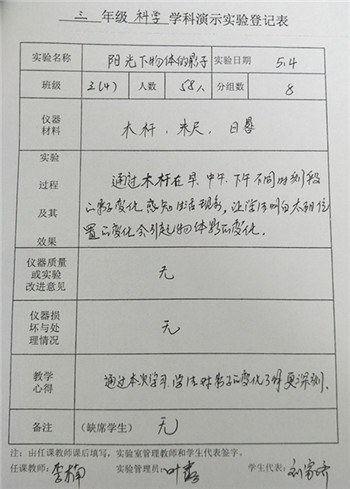 三 年级 科学 学科演示实验登记表
实验名称 阳光下物体的影子 实验日期 5.4
班级 3(4) 人数 58人 分组数 8
仪器材料 木杆、米尺、日晷
实验过程及其效果
通过木杆在早、中午、下午不同时刻段
的影子变化感知生活现象，让学生明白太阳位
置的变化会引起物体影的变化。
仪器质量或实验改进意见 无
仪器损坏与处理情况 无
教学心得 通过本次学习，学生对影子的变化了解更深刻。
备注 (缺席学生) 无
注：由任课教师课后填写，实验室管理教师和学生代表签字。
任课教师：李楠 实验管理员：叶 学生代表：刘